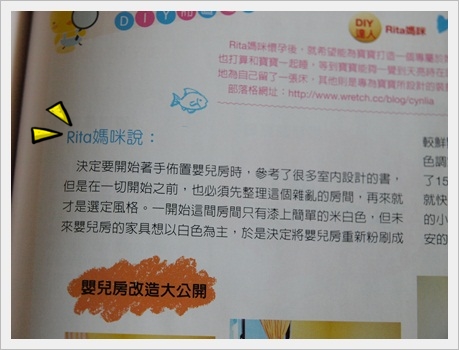 DIY
DIY
達人
Rita媽咪
Rita媽咪懷孕後，就希望能為寶寶打造一個專屬於
也打算和寶寶一起睡，等到寶寶能夠一覺到天亮時在
她為自己留了一張床，其他則是專為寶寶所設計的
部落格網址：http://www.wretch.cc/blog/cynlia
Rita媽咪說：
決定要開始著手佈置嬰兒房時，參考了很多室內設計的書，
但是在一切開始之前，也必須先整理這個雜亂的房間，再來就
才是選定風格。一開始這間房間只有漆上簡單的米白色，但未
來嬰兒房的家具想以白色為主，於是決定將嬰兒房重新粉刷成
較鮮
色調
了15
就快
的小
安的
嬰兒房改造大公開